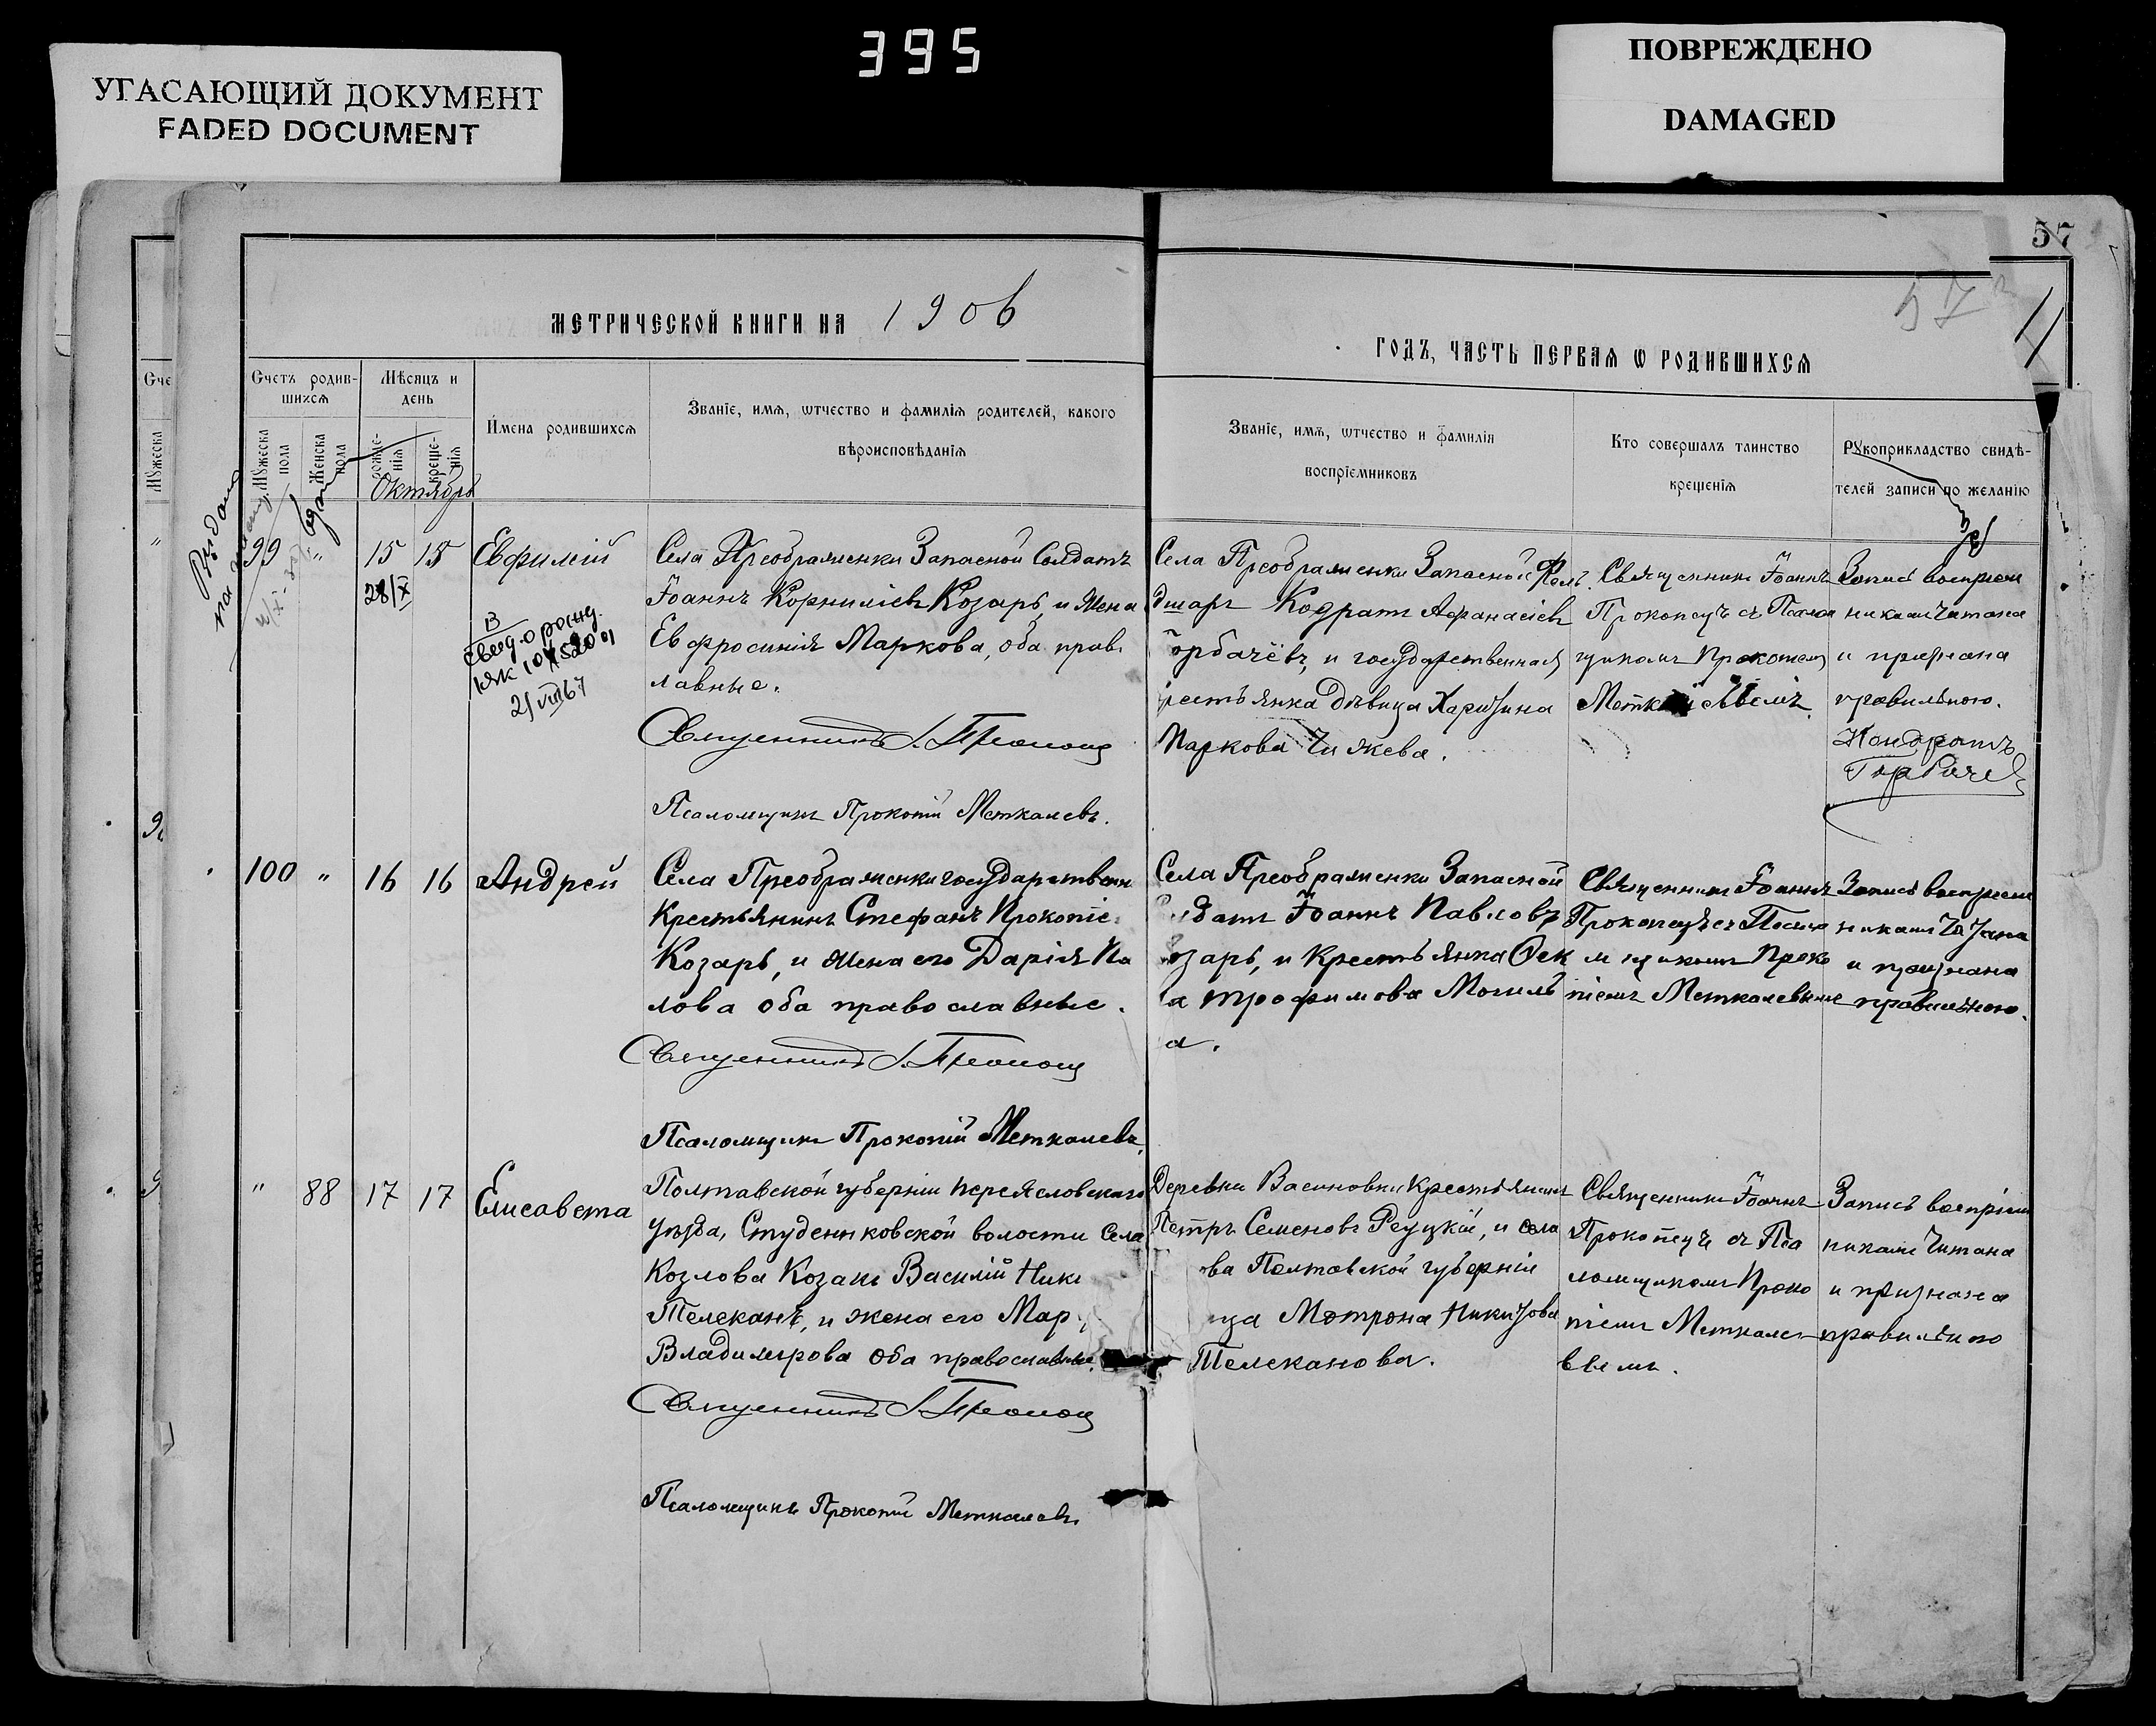 395
УГАСАЮЩИЙ ДОКУМЕНТ
FADED DOCUMENT
ПОВРЕЖДЕНО
DAMAGED
57
57
МЕТРИЧЕСКОЙ КНИГИ НА 1906
ГОДЪ, ЧАСТЬ ПЕРВАЯ Ѡ РОДИВШИХСЯ
Счетъ родив-
шихсѧ
Мѣсяцъ и
день
Имена родившихсѧ
Званїе, имѧ, ѡтчество и фамилїѧ родителей, какого
вѣроисповѣданїѧ
Званїе, имѧ, ѡтчество и фамилїѧ
воспрїемниковъ
Кто совершалъ таинство
крещенїѧ
Рꙋкоприкладство свидѣ-
телей записи по желанїю
Мꙋжеска
пола
Женска
пола
рожде-
нїѧ
креще-
нїѧ
Октябрь
Выдано
99 " 15 15 Евфимій
28/X
В
свид. о рожд.
21/VIII 67
Села Преображенки Запасной Солдатъ
Іоаннъ Корниліевъ Козарь, и жена
Евфросинія Маркова, оба прав.
лавные.
Священникъ І. Прокопец
Псаломщикъ Прокопій Меткалевъ.
Села Преображенки Запасной Фель
дшаръ Кодратъ Афанасіевъ
орбачёвъ, и государственная
рестьянка дѣвица Харитина
Маркова Чижева.
Священникъ Іоаннъ
Прокопецъ съ Псалом
щикомъ Прокопіем
Запись воспріем
никами читана
и признана
правильною.
Кондратъ
Горбачев
100 " 16 16 Андрей
Села Преображенки государствен
Крестьянинъ Стефанъ Прокопіе
Козарь, и жена его Дарія Па
лова оба православные.
Священникъ І. Прокопец
Псаломщикъ Прокопій Меткалевъ.
Села Преображенки Запасной
датъ Іоаннъ Павловъ
озарь, и Крестьянка Фек
а Трофимова Могиль
а.
Священникъ Іоаннъ
Прокопецъ съ Псало
мщикомъ Проко
піемъ Меткалевымъ
Запись воспріем
никами читана
и признана
правильною.
" 88 17 17 Елисавета
Полтавской губерніи Переясловскаго
уѣзда, Студениковской волости Села
Козлова Козакъ Василій Ники
Телеканъ, и жена его Мар
Владимірова оба православные.
Священникъ І. Прокопец
Псаломщикъ Прокопій Меткалевъ
Деревни Васиновки Крестьянинъ
Петръ Семеновъ Реуцкій, и села
ова Полтавской губерніи
ца Мотрона Никитова
Телеканова.
Священникъ Іоаннъ
Прокопецъ съ Пса
ломщикомъ Проко
піемъ Меткале
вымъ.
Запись воспріем
никами читана
и признана
правильною